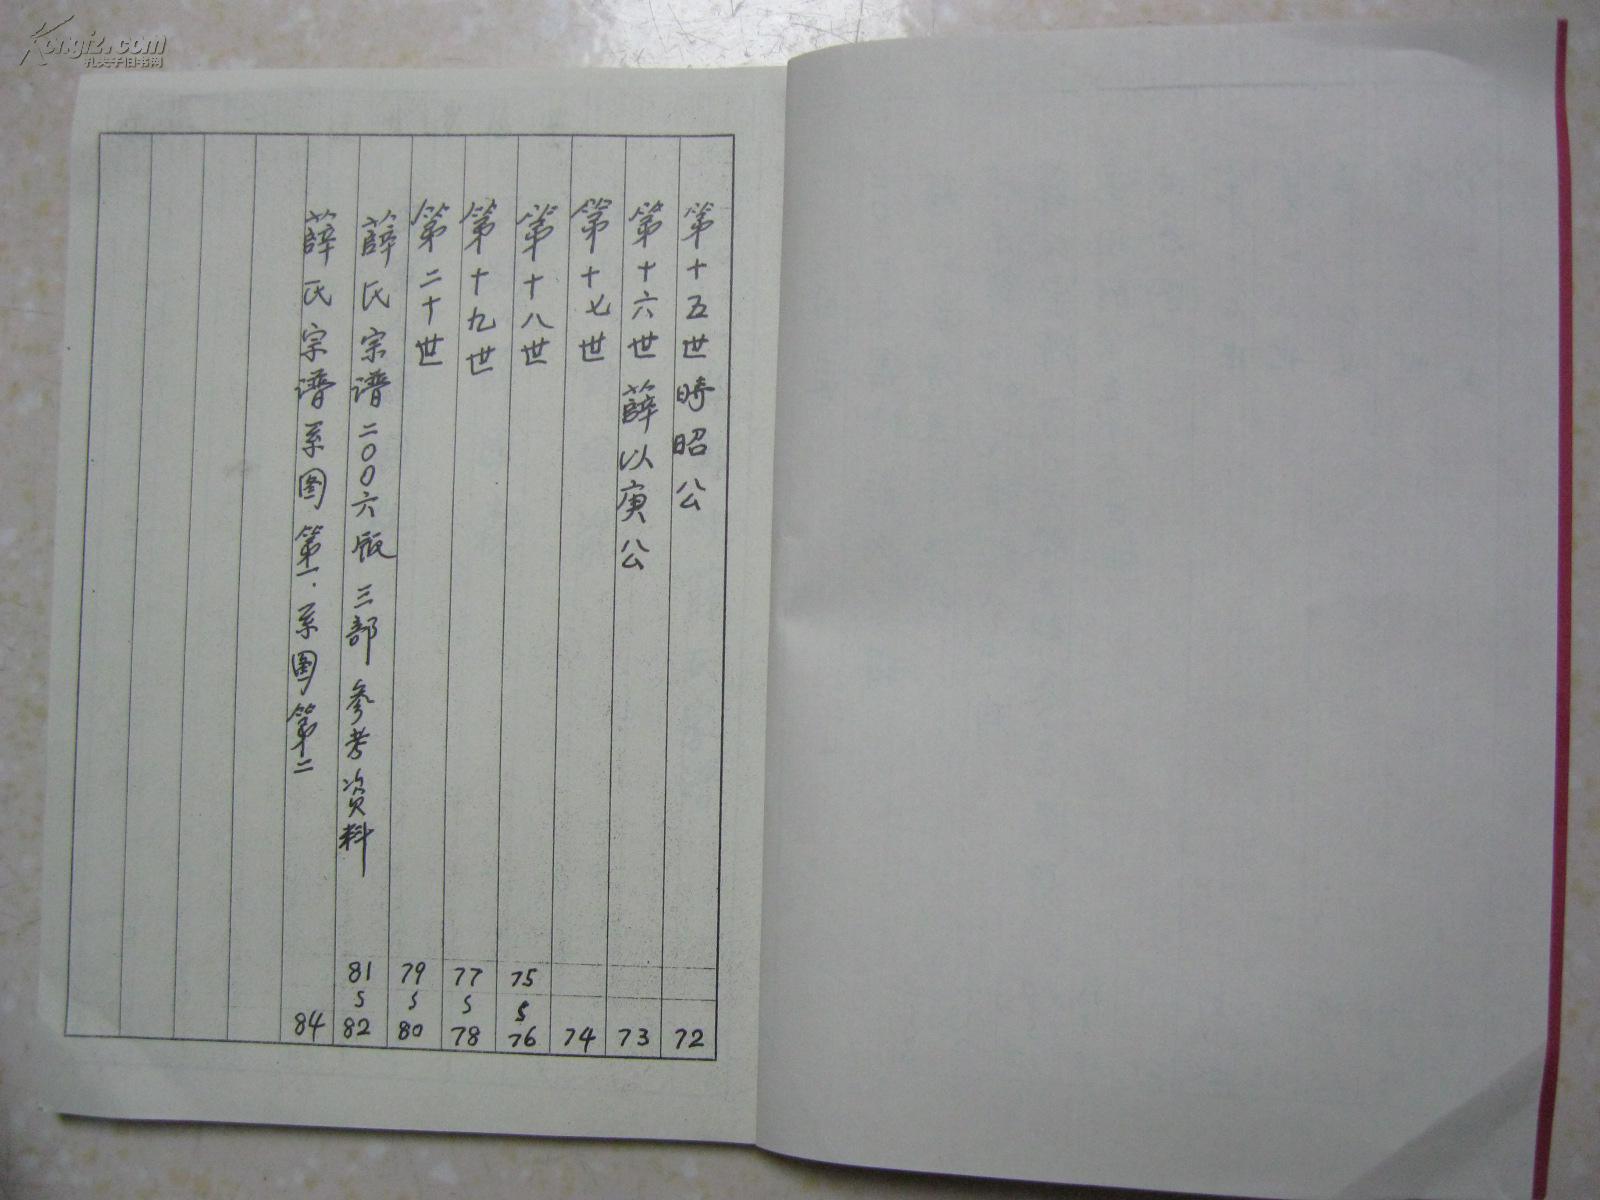 第十五世 時昭公 72
第十六世 薛以庚公 73
第十七世 74
第十八世 75 5 76
第十九世 77 5 78
第二十世 79 5 80
薛氏宗谱二〇〇六版 三部 参考资料 81 5 82
薛氏宗谱系图第一.系图第二 84
Kongfz.com
孔夫子旧书网